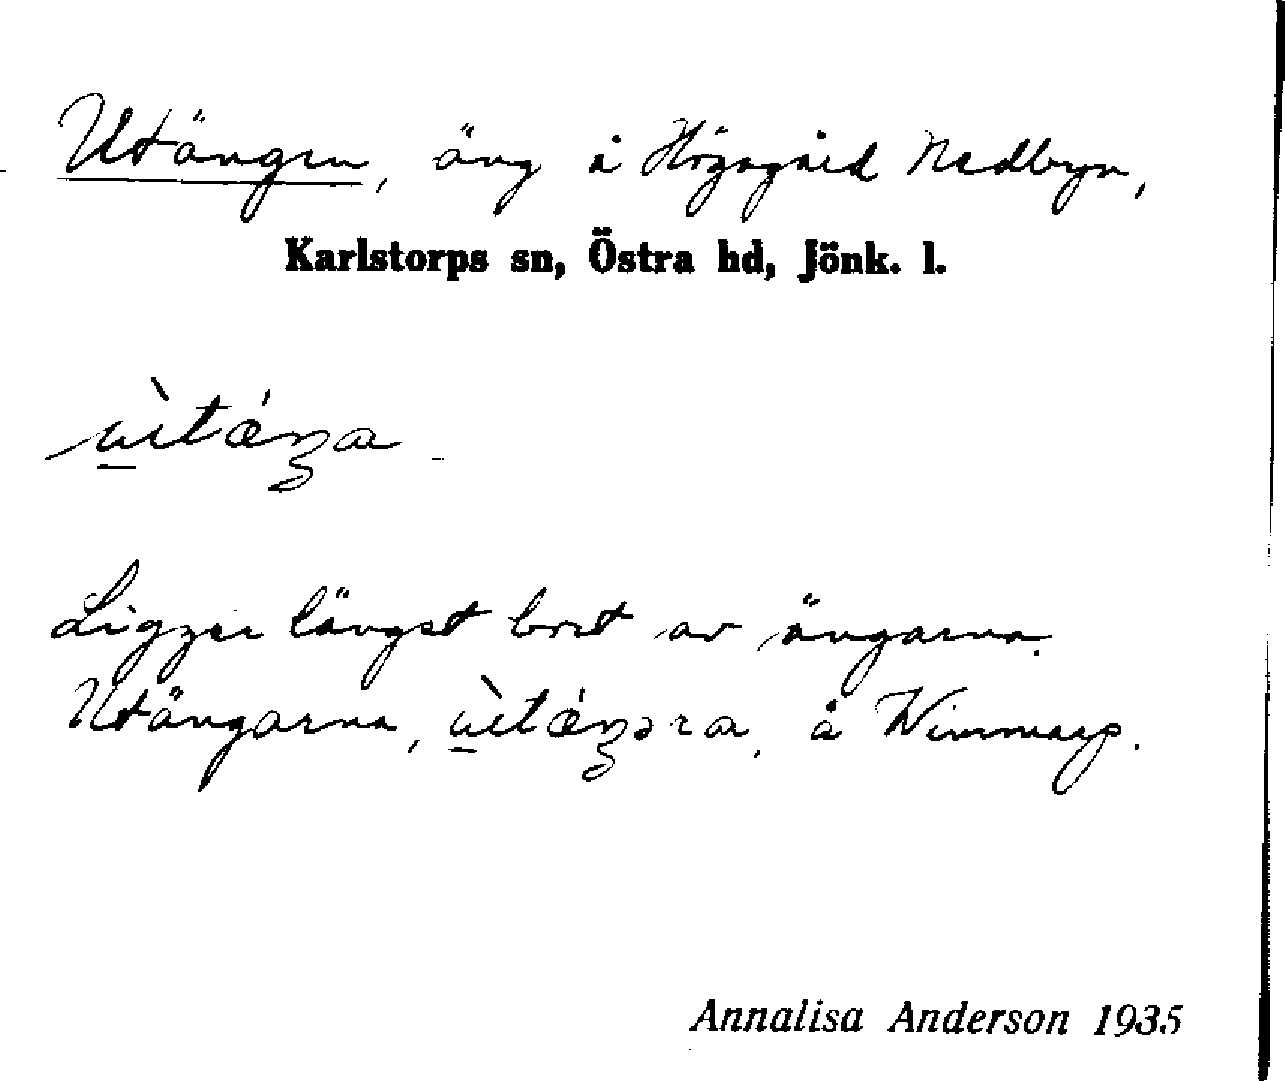 Utängen, äng å Högagärd Nedbyn,
Karlstorps sn, Östra hd, Jönk. l.
ùtǽŋa
Ligger längst bort av ängarna.
Utängarna, ùtǽŋəra, å Wimmarp.
Annalisa Anderson 1935